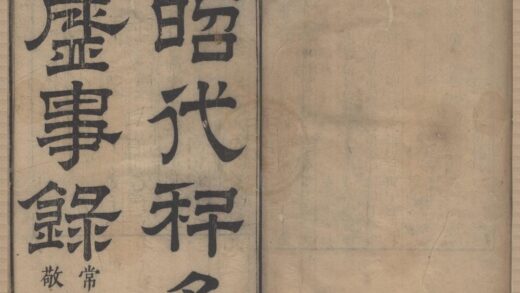 昭代科名
盛事錄
常
敬